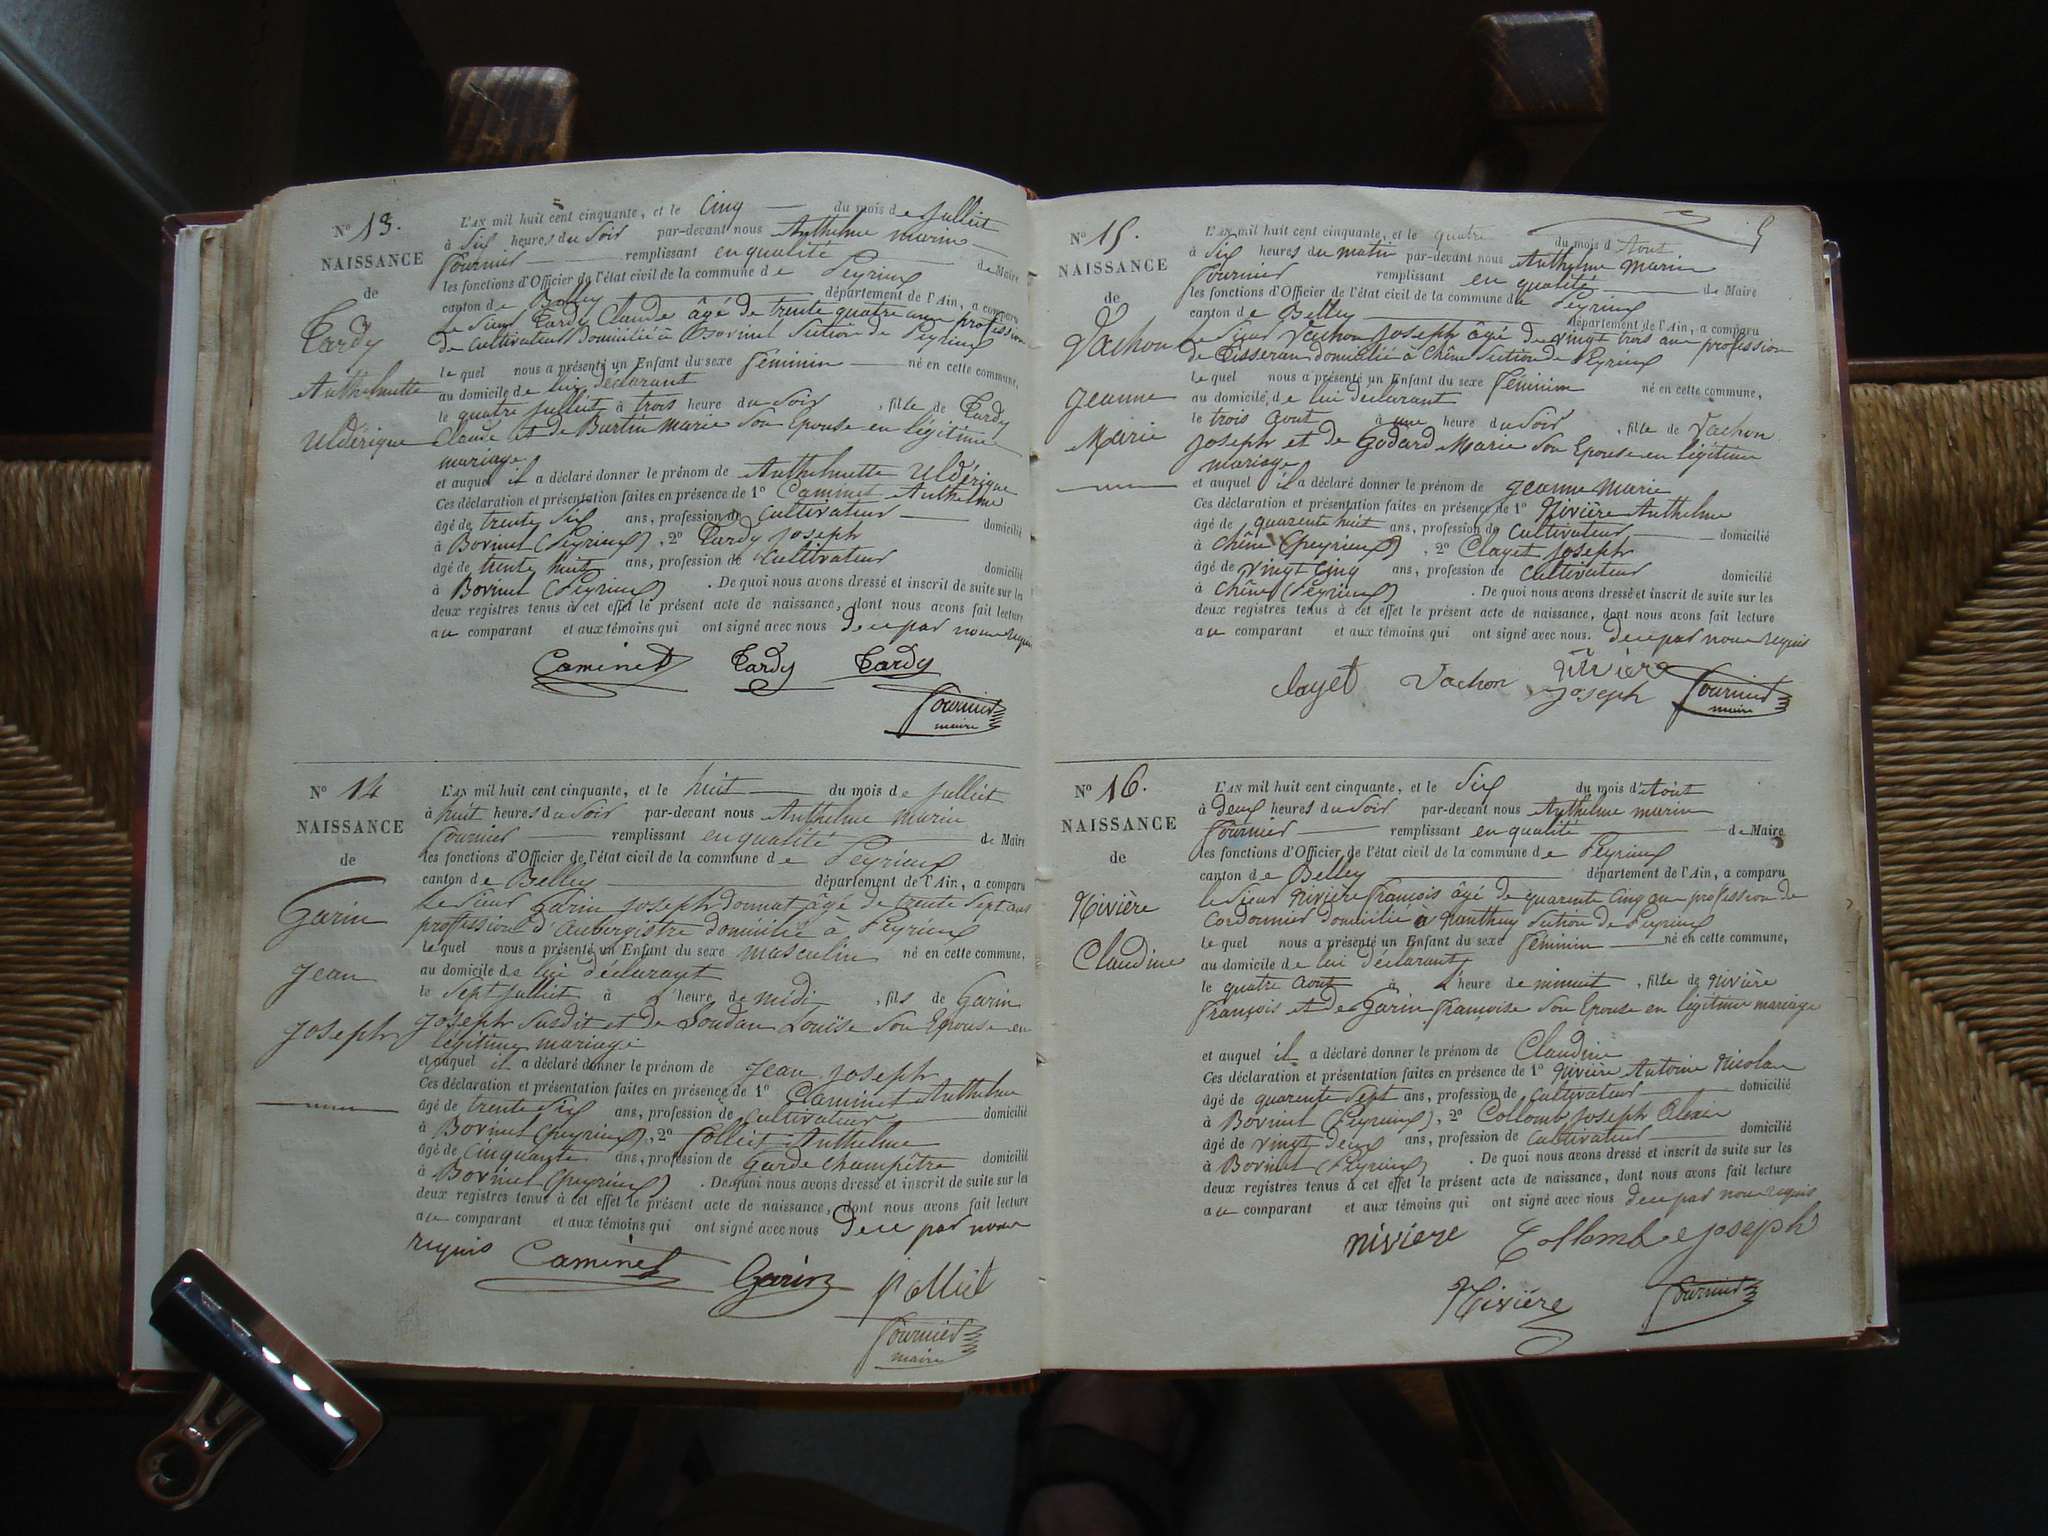 N° 13.
NAISSANCE
de
Tardy
Anthelmette
Uldérique
L'AN mil huit cent cinquante, et le cinq du mois de juillet
à six heures du soir par-devant nous Anthelme marin
Fournier remplissant en qualité de Maire
les fonctions d'Officier de l'état civil de la commune de Peyrieux
canton de Belley département de l'Ain, a comparu
Le sieur Tardy Claude âgé de trente quatre ans profession
de cultivateur domicilié à Bovinel section de Peyrieux
lequel nous a présenté un Enfant du sexe féminin né en cette commune,
au domicile de lui déclarant
le quatre juillet à trois heure du soir, fille de Tardy
Claude et de Burtin marie son Epouse en légitime
mariage
et auquel il a déclaré donner le prénom de Anthelmette Uldérique
Ces déclaration et présentation faites en présence de 1° Caminet Anthelme
âgé de trente six ans, profession de cultivateur domicilié
à Bovinel (Peyrieux), 2° Tardy joseph
âgé de trente huit ans, profession de cultivateur domicilié
à Bovinel (Peyrieux). De quoi nous avons dressé et inscrit de suite sur les
deux registres tenus à cet effet le présent acte de naissance, dont nous avons fait lecture
au comparant et aux témoins qui ont signé avec nous de ce par nous requis
Caminet Tardy Tardy
Fournier
maire
N° 14
NAISSANCE
de
Garin
Jean
Joseph
L'AN mil huit cent cinquante, et le huit du mois de juillet
à huit heures du soir par-devant nous Anthelme marin
Fournier remplissant en qualité de Maire
les fonctions d'Officier de l'état civil de la commune de Peyrieux
canton de Belley département de l'Ain, a comparu
Le sieur Garin joseph donnat âgé de trente sept ans
profession d'aubergiste domicilié à Peyrieux
lequel nous a présenté un Enfant du sexe masculin né en cette commune,
au domicile de lui déclarant
le sept juillet à l'heure de midi, fils de Garin
joseph susdit et de Loudan Louise son Epouse en
légitime mariage
et auquel il a déclaré donner le prénom de Jean joseph
Ces déclaration et présentation faites en présence de 1° Caminet Anthelme
âgé de trente six ans, profession de cultivateur domicilié
à Bovinel (peyrieux), 2° Polliet Anthelme
âgé de cinquante ans, profession de Garde champêtre domicilié
à Bovinel (peyrieux). De quoi nous avons dressé et inscrit de suite sur les
deux registres tenus à cet effet le présent acte de naissance, dont nous avons fait lecture
au comparant et aux témoins qui ont signé avec nous de ce par nous
requis Caminet Garin Polliet
Fournier
maire
5
N° 15.
NAISSANCE
de
Vachon
Jeanne
Marie
L'AN mil huit cent cinquante, et le quatre du mois d'Aout
à six heures du matin par-devant nous Anthelme Marin
Fournier remplissant en qualité de Maire
les fonctions d'Officier de l'état civil de la commune de Peyrieux
canton de Belley département de l'Ain, a comparu
Le sieur Vachon joseph âgé de vingt trois ans profession
de Tisseran domicilié à Chêne section de Peyrieux
lequel nous a présenté un Enfant du sexe féminin né en cette commune,
au domicile de lui déclarant
le trois Aout à une heure du soir, fille de Vachon
joseph et de Godard Marie son Epouse en légitime
mariage
et auquel il a déclaré donner le prénom de jeanne Marie
Ces déclaration et présentation faites en présence de 1° Nivière Anthelme
âgé de quarente huit ans, profession de cultivateur domicilié
à Chêne (peyrieux), 2° Clayet joseph
âgé de vingt cinq ans, profession de cultivateur domicilié
à Chêne (Peyrieux). De quoi nous avons dressé et inscrit de suite sur les
deux registres tenus à cet effet le présent acte de naissance, dont nous avons fait lecture
au comparant et aux témoins qui ont signé avec nous. de ce par nous requis
Clayet Vachon Nivière
joseph Fournier
maire
N° 16.
NAISSANCE
de
Nivière
Claudine
L'AN mil huit cent cinquante, et le six du mois d'Aout
à deux heures du soir par-devant nous Anthelme marin
Fournier remplissant en qualité de Maire
les fonctions d'Officier de l'état civil de la commune de Peyrieux
canton de Belley département de l'Ain, a comparu
le sieur Nivière françois âgé de quarente cinq ans profession de
Cordonnier domicilié a Nanthuy section de Peyrieux
lequel nous a présenté un Enfant du sexe féminin né en cette commune,
au domicile de lui déclarant
le quatre Aout à l'heure de minuit, fille de Nivière
françois et de Garin françoise son Epouse en légitime mariage
et auquel il a déclaré donner le prénom de Claudine
Ces déclaration et présentation faites en présence de 1° Nivière Antoine Nicolas
âgé de quarente sept ans, profession de cultivateur domicilié
à Bovinel (Peyrieux), 2° Collomb joseph Alexis
âgé de vingt deux ans, profession de cultivateur domicilié
à Bovinel (Peyrieux). De quoi nous avons dressé et inscrit de suite sur les
deux registres tenus à cet effet le présent acte de naissance, dont nous avons fait lecture
au comparant et aux témoins qui ont signé avec nous de ce par nous requis
niviere Collomb joseph
Nivière Fournier